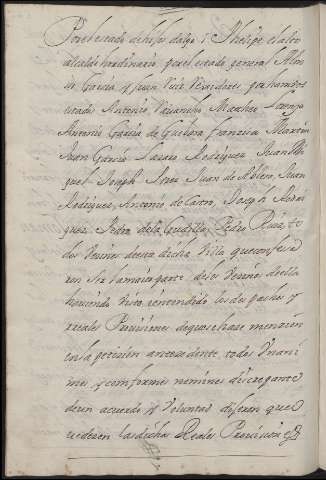 Por el estado de hijos dalgo, D. Phelipe
alcalde hordinario, por el estado general Alon
so Garcia y Juan Ruiz, por hambos
estados Antonio, Matheo
Antonio Garcia de Francisco Martin
Juan Garcia Rodriguez, Juan Mi
guel, Joseph Perez, Juan de Robles, Juan
Rodriguez, Antonio de Castro, Joseph Rodri
guez, Pedro de la Pedro Ruiz, to
dos Vecinos de esta dicha Villa que confesa
ron ser la maior parte de los Vecinos de ella
haviendo Visto, y entendido los despachos y
reales Provisiones de que se hace mencion
en la peticion antecedente, todos Unani
mes, y conformes nemine discrepante
de un acuerdo y Voluntad dijeron que
las dichas Reales Provisiones